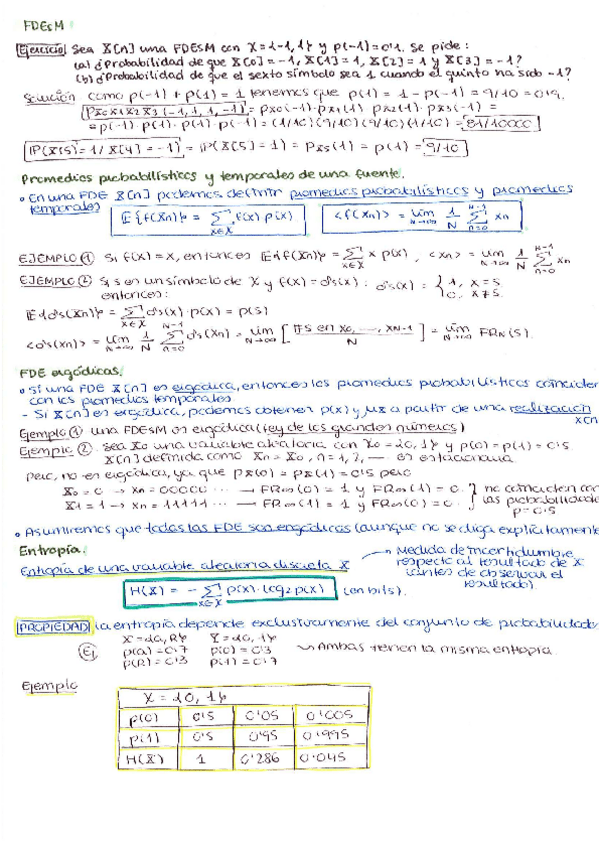 FDEsM
Ejercicio Sea X[n] una FDEsM con X={-1,1} y p(-1)=0'1. Se pide:
(a) ¿Probabilidad de que X[0]=-1, X[1]=1, X[2]=1 y X[3]=-1?
(b) ¿Probabilidad de que el sexto símbolo sea 1 cuando el quinto ha sido -1?
Solución Como p(-1)+p(1)=1 tenemos que p(1)=1-p(-1)=9/10=0'9.
Px0x1x2x3(-1,1,1,-1)=px0(-1)·px1(1)·px2(1)·px3(-1)=
=p(-1)·p(1)·p(1)·p(-1)=(1/10)(9/10)(9/10)(1/10)=81/10000
P(X[5]=1/X[4]=-1)=P(X[5]=1)=Px5(1)=p(1)=9/10
Promedios probabilísticos y temporales de una fuente.
• En una FDE X[n] podemos definir promedios probabilísticos y promedios
temporales E{f(Xn)}=∑x∈X f(x)p(x) <f(xn)>=lim N→∞ 1/N ∑n=0 N-1 xn
EJEMPLO ① Si f(x)=x, entonces E{f(Xn)}=∑x∈X x p(x), <xn>=lim N→∞ 1/N ∑n=0 N-1 xn
EJEMPLO ② Si s es un símbolo de X y f(x)=δs(x): δs(x)={1, x=s
0, x≠s
entonces:
E{δs(Xn)}=∑x∈X δs(x)·p(x)=p(s)
<δs(xn)>=lim N→∞ 1/N ∑n=0 N-1 δs(xn)=lim N→∞[#s en x0,...,xN-1 / N]=lim N→∞ FRN(s).
FDE ergódicas.
• Si una FDE X[n] es ergódica, entonces los promedios probabilísticos coinciden
con los promedios temporales.
- Si X[n] es ergódica, podemos obtener p(x) y μx a partir de una realización
x[n]
Ejemplo ① una FDEsM es ergódica (ley de los grandes números)
Ejemplo ② Sea X0 una variable aleatoria con X0={0,1} y p(0)=p(1)=0'5
X[n] definida como Xn=X0, n=1,2,... es estacionaria.
pero, no es ergódica, ya que px(0)=px(1)=0'5 pero
X0=0 → xn=00000... → FR∞(0)=1 y FR∞(1)=0. } no coinciden con
X1=1 → xn=11111... → FR∞(1)=1 y FR∞(0)=0. las probabilidades
p=0'5
• Asumiremos que todas las FDE son ergódicas (aunque no se diga explícitamente
Entropía.
Entropía de una variable aleatoria discreta X
→ Medida de incertidumbre
respecto al resultado de X
(antes de observar el
resultado).
H(X)=-∑x∈X p(x)·log2 p(x) (en bits).
PROPIEDAD La entropía depende exclusivamente del conjunto de probabilidades
Ej X={a,B} Y={0,1}
p(a)=0'7 p(0)=0'3 → Ambas tienen la misma entropía.
p(B)=0'3 p(1)=0'7
Ejemplo
X={0,1}
p(0) 0'5 0'05 0'005
p(1) 0'5 0'95 0'995
H(X) 1 0'286 0'045